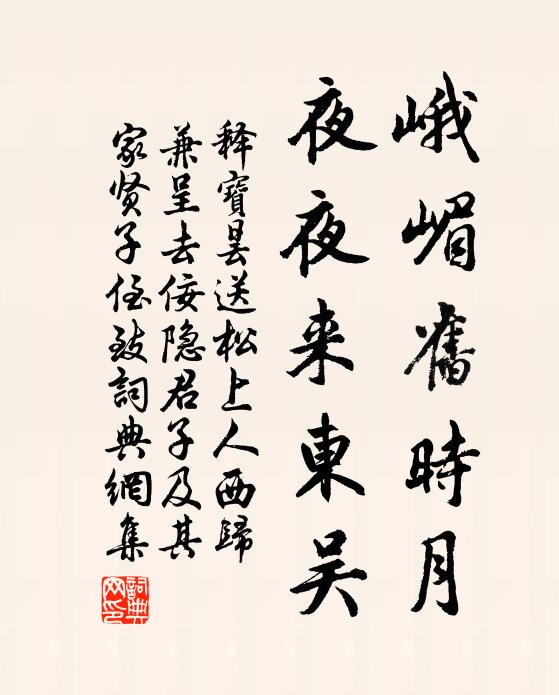 峨嵋舊時月
夜夜来東吴
释寶昙送松上人西歸
兼呈去佞隐君子及其
家贤子侄致詞典網集
詞典网印